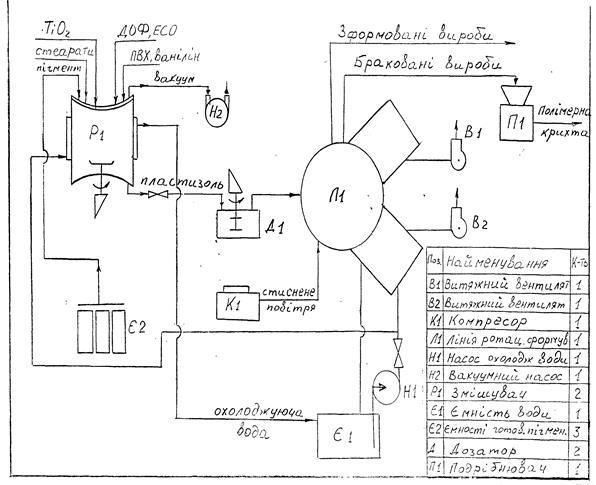 TiO2
ДОФ, ЕСО
Зформовані вироби
стеарати
ПВХ, ванілін
пігмент
вакуум
Браковані вироби
Н2
Р1
П1
Полімерна
крихта
В1
пластизоль
Л1
Д1
В2
К1
стиснене
повітря
Є2
Н1
охолоджуюча
вода
Є1
Поз. Найменування К-ть
В1 Витяжний вентилят 1
В2 Витяжний вентилят 1
К1 Компресор 1
Л1 Лінія ротац. формув 1
Н1 Насос охолодж води 1
Н2 Вакуумний насос 1
Р1 Змішувач 2
Є1 Ємність води 1
Є2 Ємності готов. пігмен. 3
Д Дозатор 2
П1 Подрібнювач 1